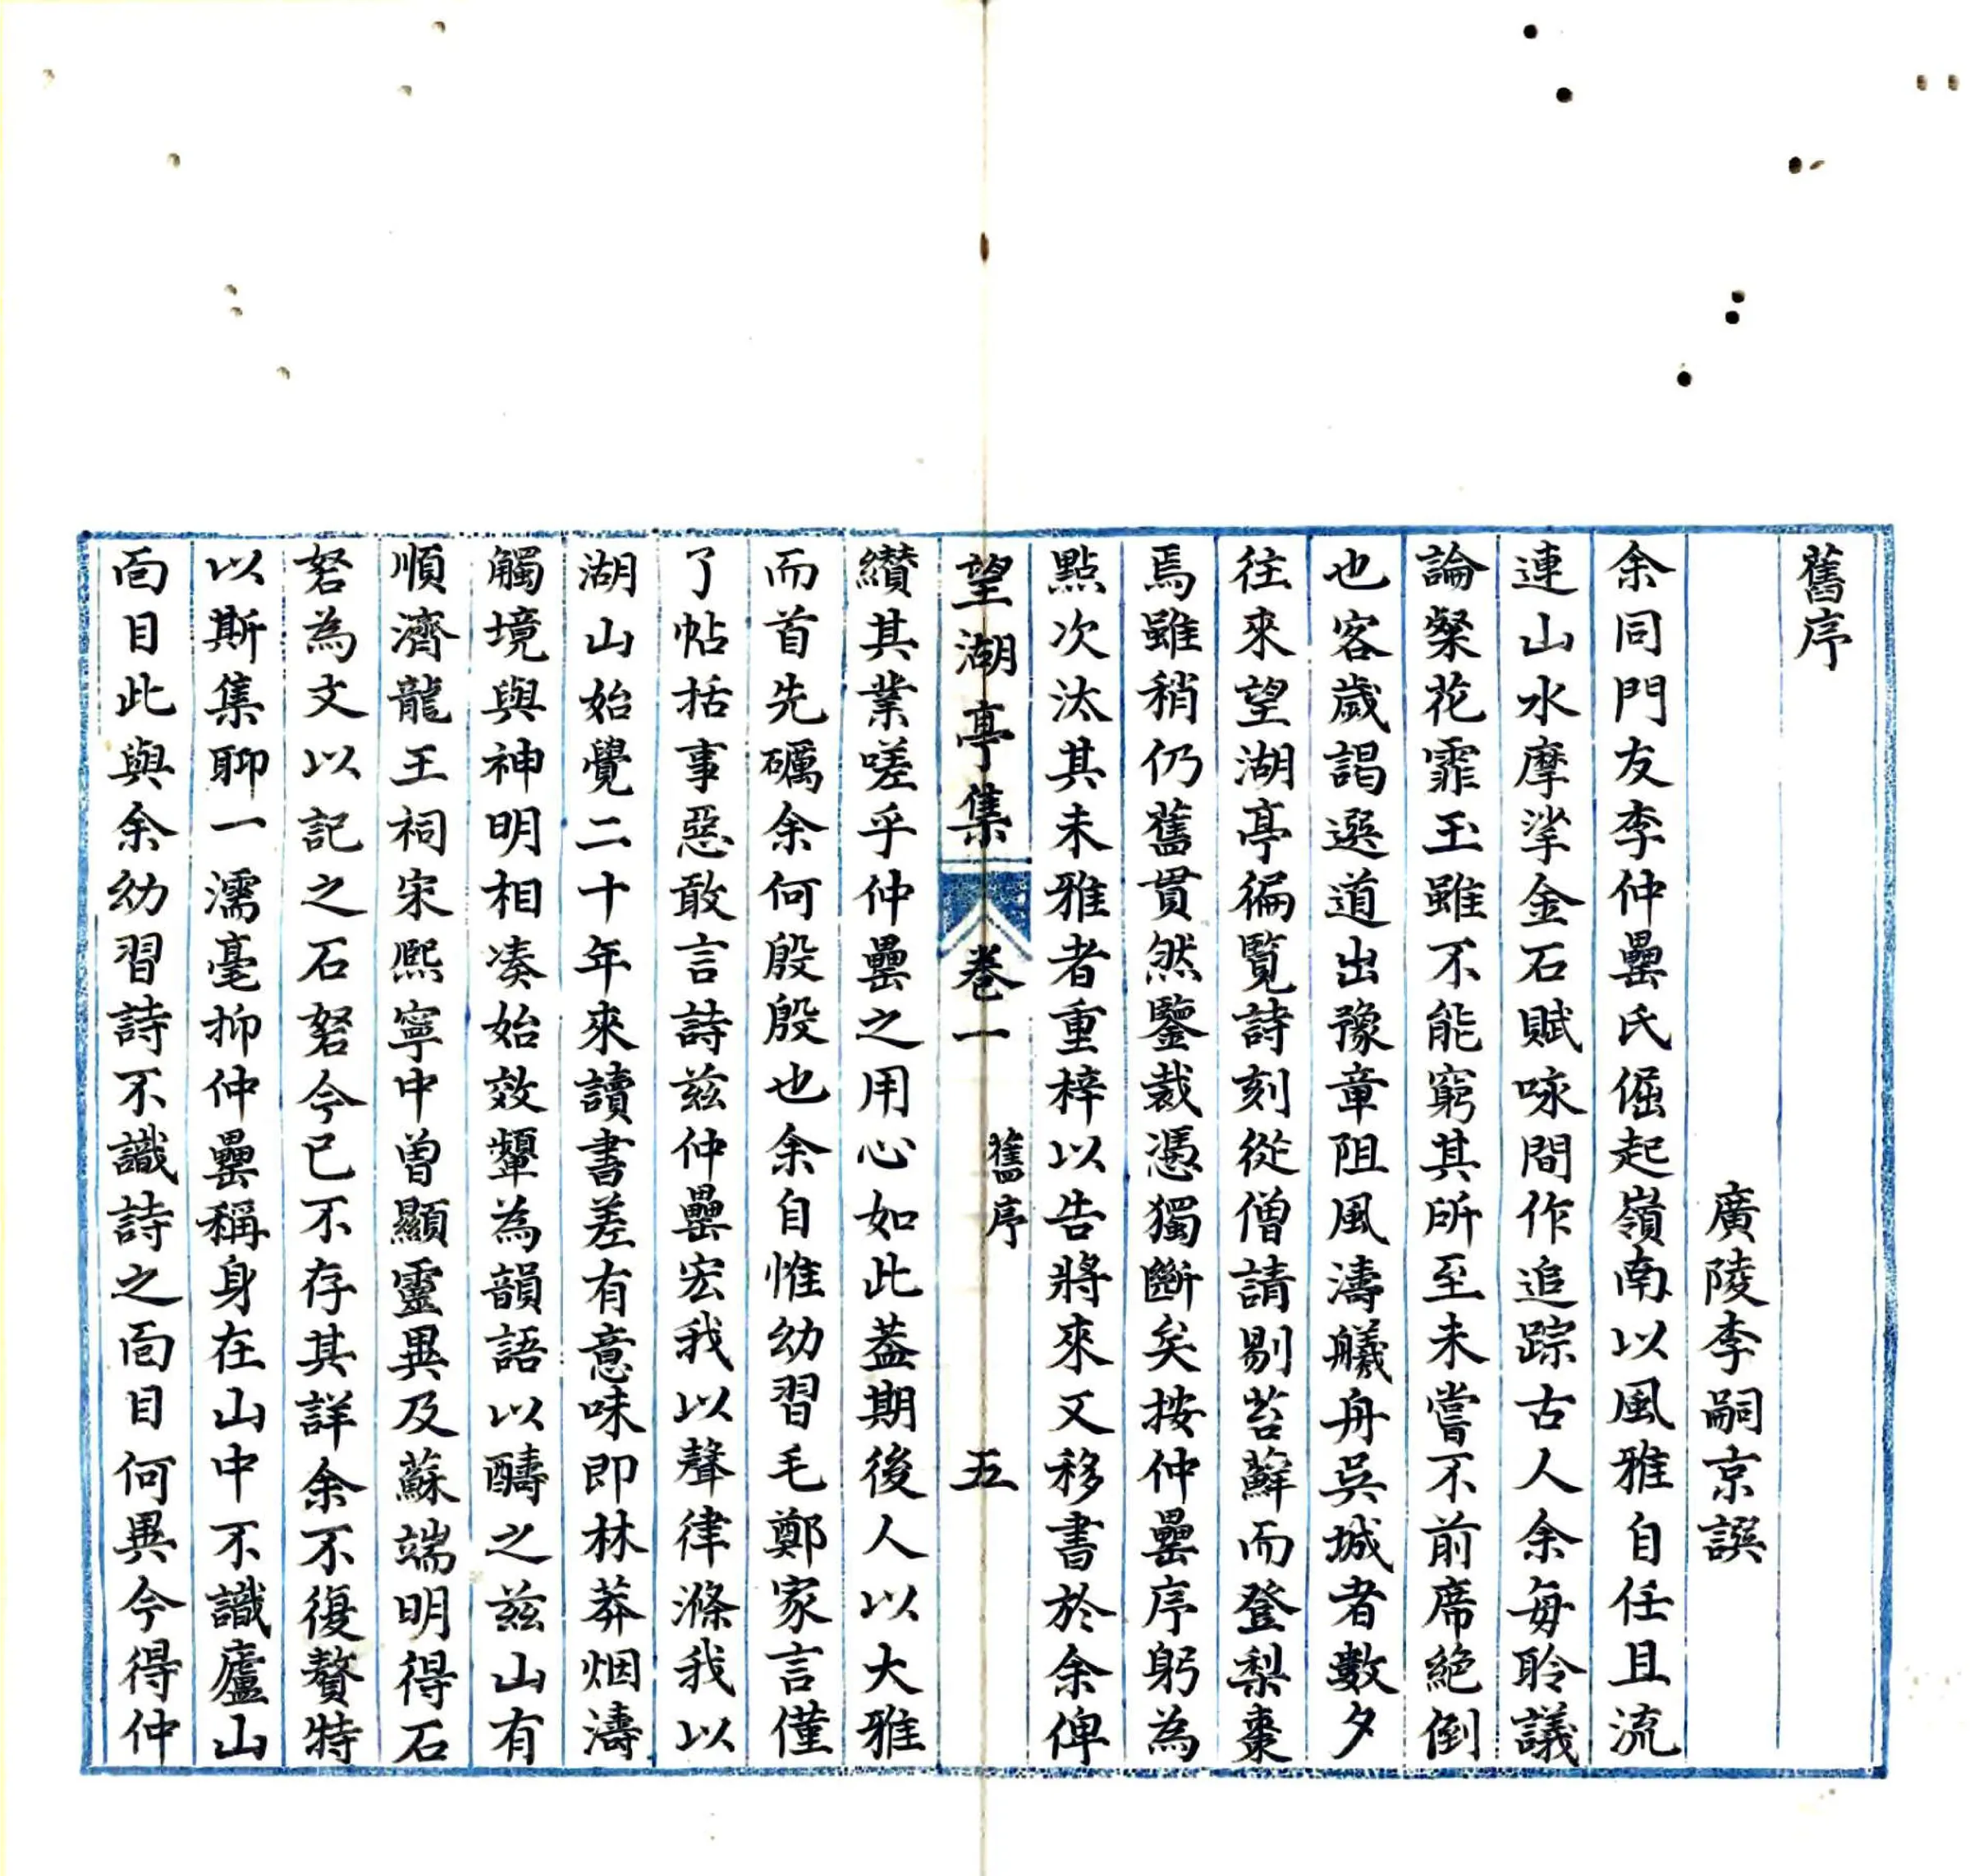 舊序
廣陵李嗣京譔
余同門友李仲罍氏倔起嶺南以風雅自任且流
連山水摩挲金石賦咏間作追踪古人余每聆議
論粲花霏玉雖不能窮其所至未嘗不前席絕倒
也客歲謁選道出豫章阻風濤艤舟吳城者數夕
往來望湖亭徧覧詩刻從僧請剔苔蘚而登梨棗
焉雖稍仍舊貫然鑒裁憑獨斷矣按仲罍序躬為
點次汰其未雅者重梓以告將來又移書於余俾
望湖亭集 卷一 舊序 五
纘其業嗟乎仲罍之用心如此葢期後人以大雅
而首先礪余何殷殷也余自惟幼習毛鄭家言僅
了帖括事惡敢言詩兹仲罍宏我以聲律滌我以
湖山始覺二十年來讀書差有意味即林莽烟濤
觸境與神明相凑始效顰為韻語以醻之兹山有
順濟龍王祠宋熙寧中曾顯靈異及蘇端明得石
砮為文以記之石砮今已不存其詳余不復贅特
以斯集聊一濡毫抑仲罍稱身在山中不識廬山
靣目此與余幼習詩不識詩之靣目何異今得仲